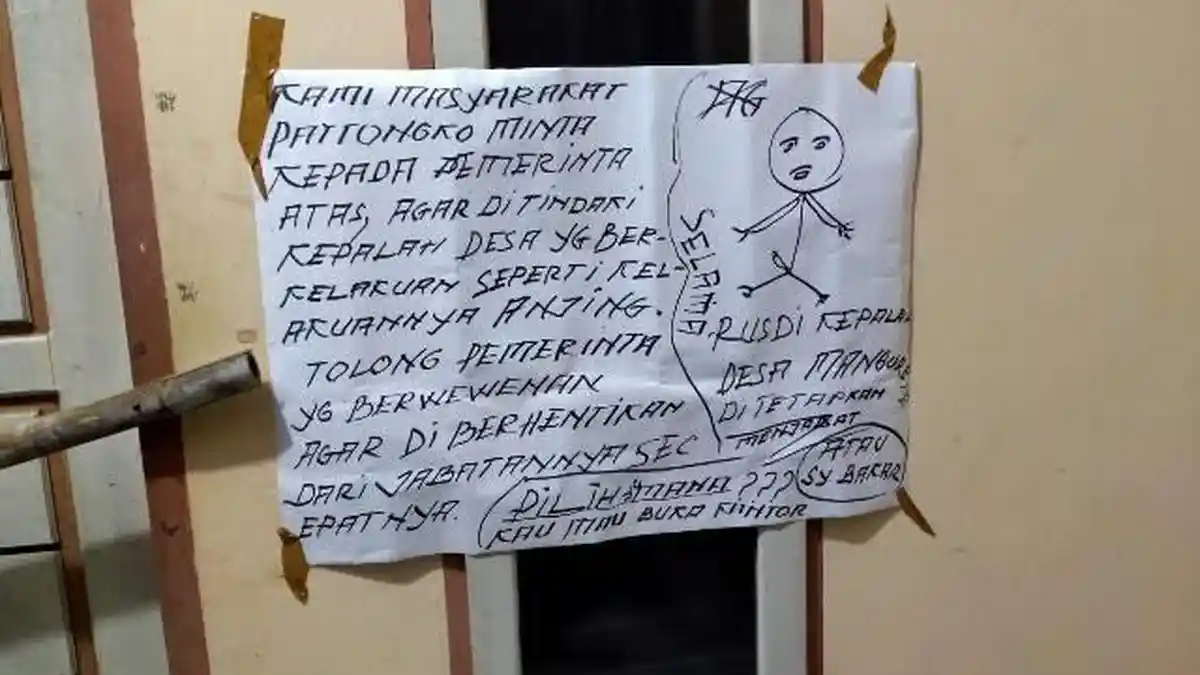 KAMI MASYARAKAT
PATTONGKO MINTA
KEPADA PEMERINTA
ATAS, AGAR DITINDAKI
KEPALAH DESA YG BER-
KELAKUAN SEPERTI KEL-
AKUANNYA ANJING.
TOLONG PEMERINTA
YG BERWEWENAN
AGAR DI BERHENTIKAN
DARI JABATANNYA SEC
EPATNYA.
SELAMA
RUSDI KEPALAH
DESA
DITETAPKAN
MENJABAT
ATAU
SY BAKAR
DILIH MANA ???
KAU MAU BUKA KANTOR